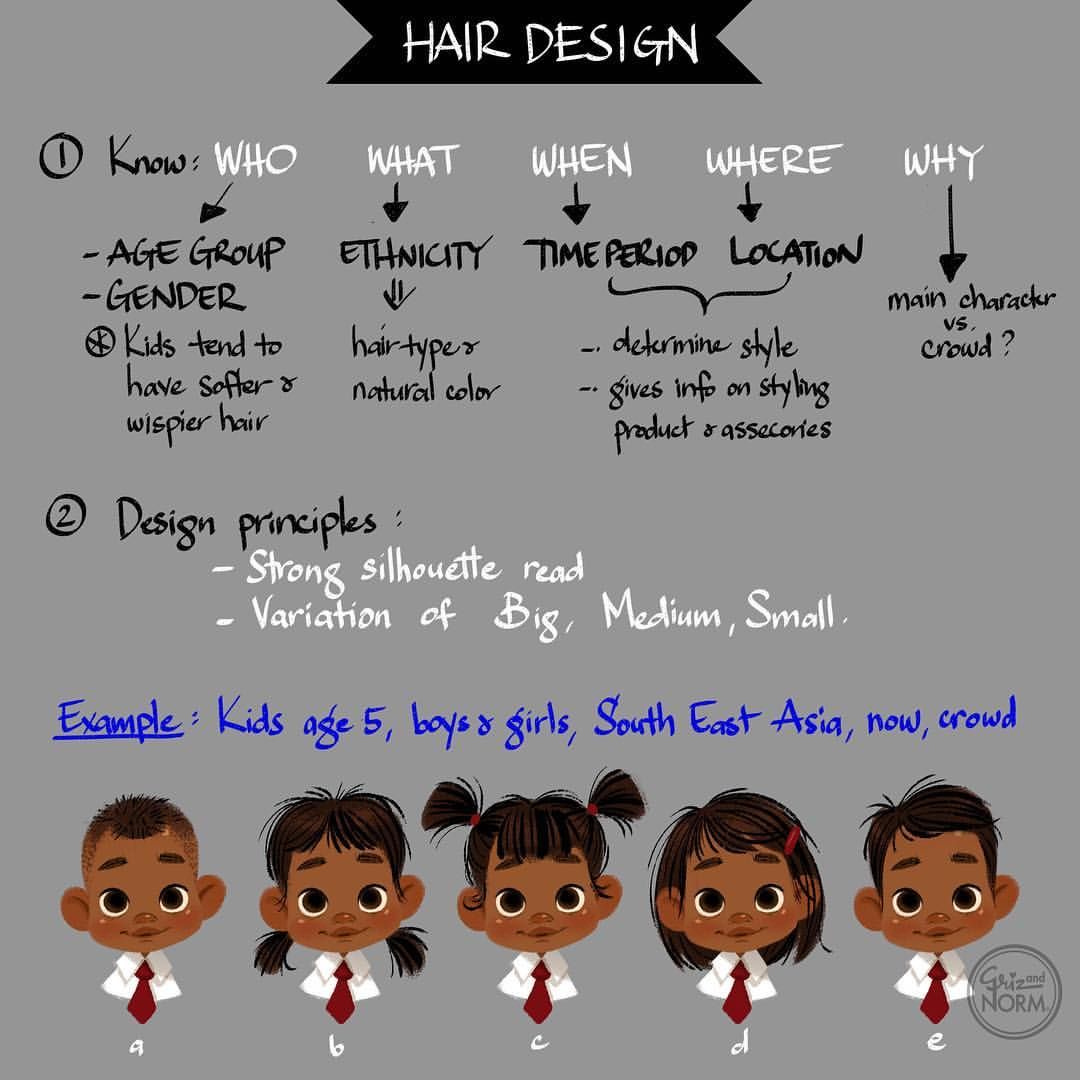 HAIR DESIGN
① Know: WHO WHAT WHEN WHERE WHY
- AGE GROUP
- GENDER
⊛ Kids tend to
have softer &
wispier hair
ETHNICITY
hairtype &
natural color
TIME PERIOD LOCATION
-. determine style
-. gives info on styling
product & assecories
main charactr
vs.
crowd?
② Design principles :
- Strong silhouette read
- Variation of Big, Medium, Small.
Example : Kids age 5, boys & girls, South East Asia, now, crowd
a b c d e
Griz and
NORM